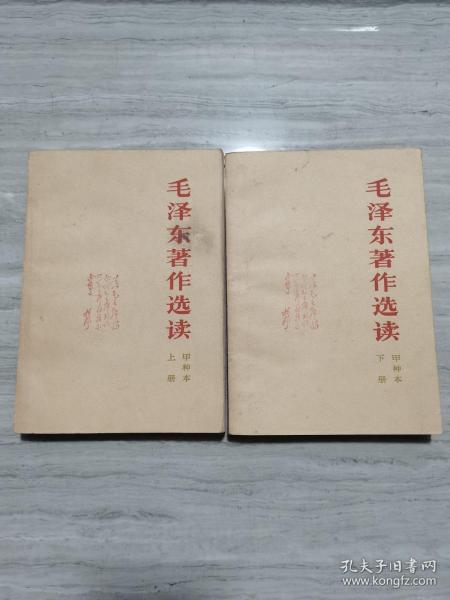 毛泽东著作选读
甲种本
上册
毛泽东著作选读
甲种本
下册
孔夫子旧书网
www.kongfz.com